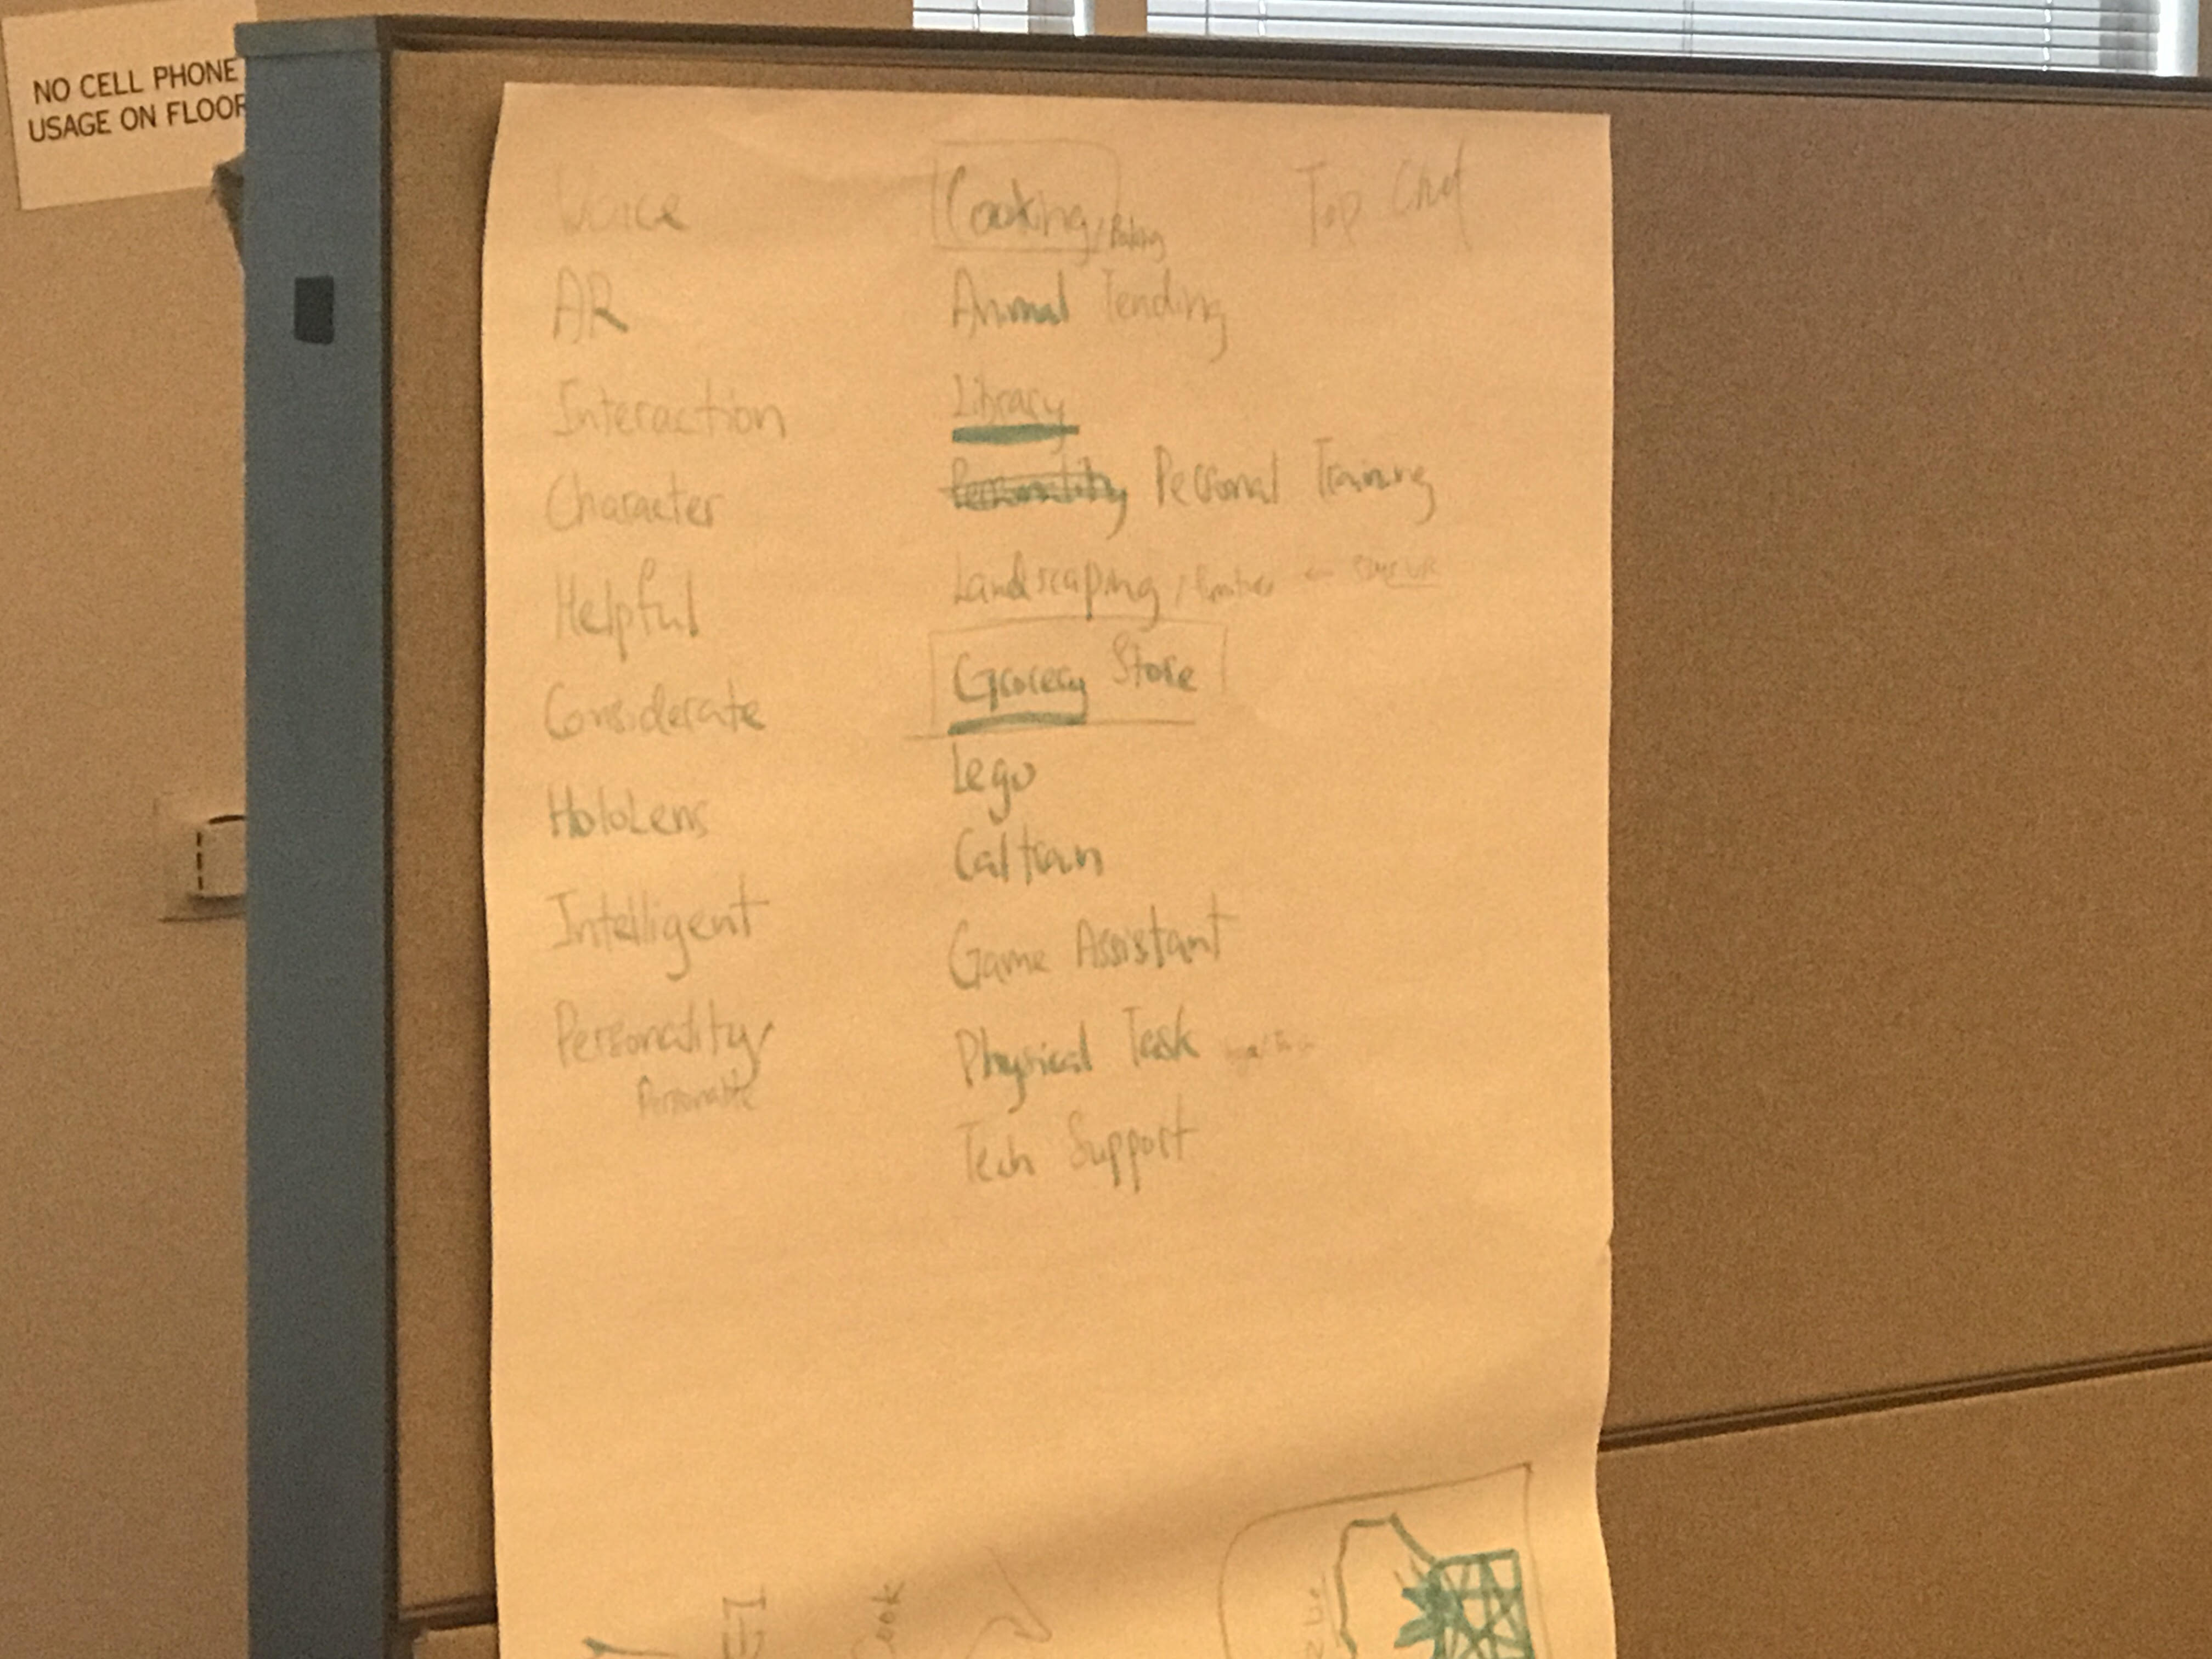 NO CELL PHONE
USAGE ON FLOOR
Voice
AR
Interaction
Character
Helpful
Considerate
HoloLens
Intelligent
Personality/
Personable
Cooking/Baking
Animal Tending
Library
Personality Personal Training
Landscaping /
Grocery Store
Lego
Caltrain
Game Assistant
Physical Task
Tech Support
Top Chef